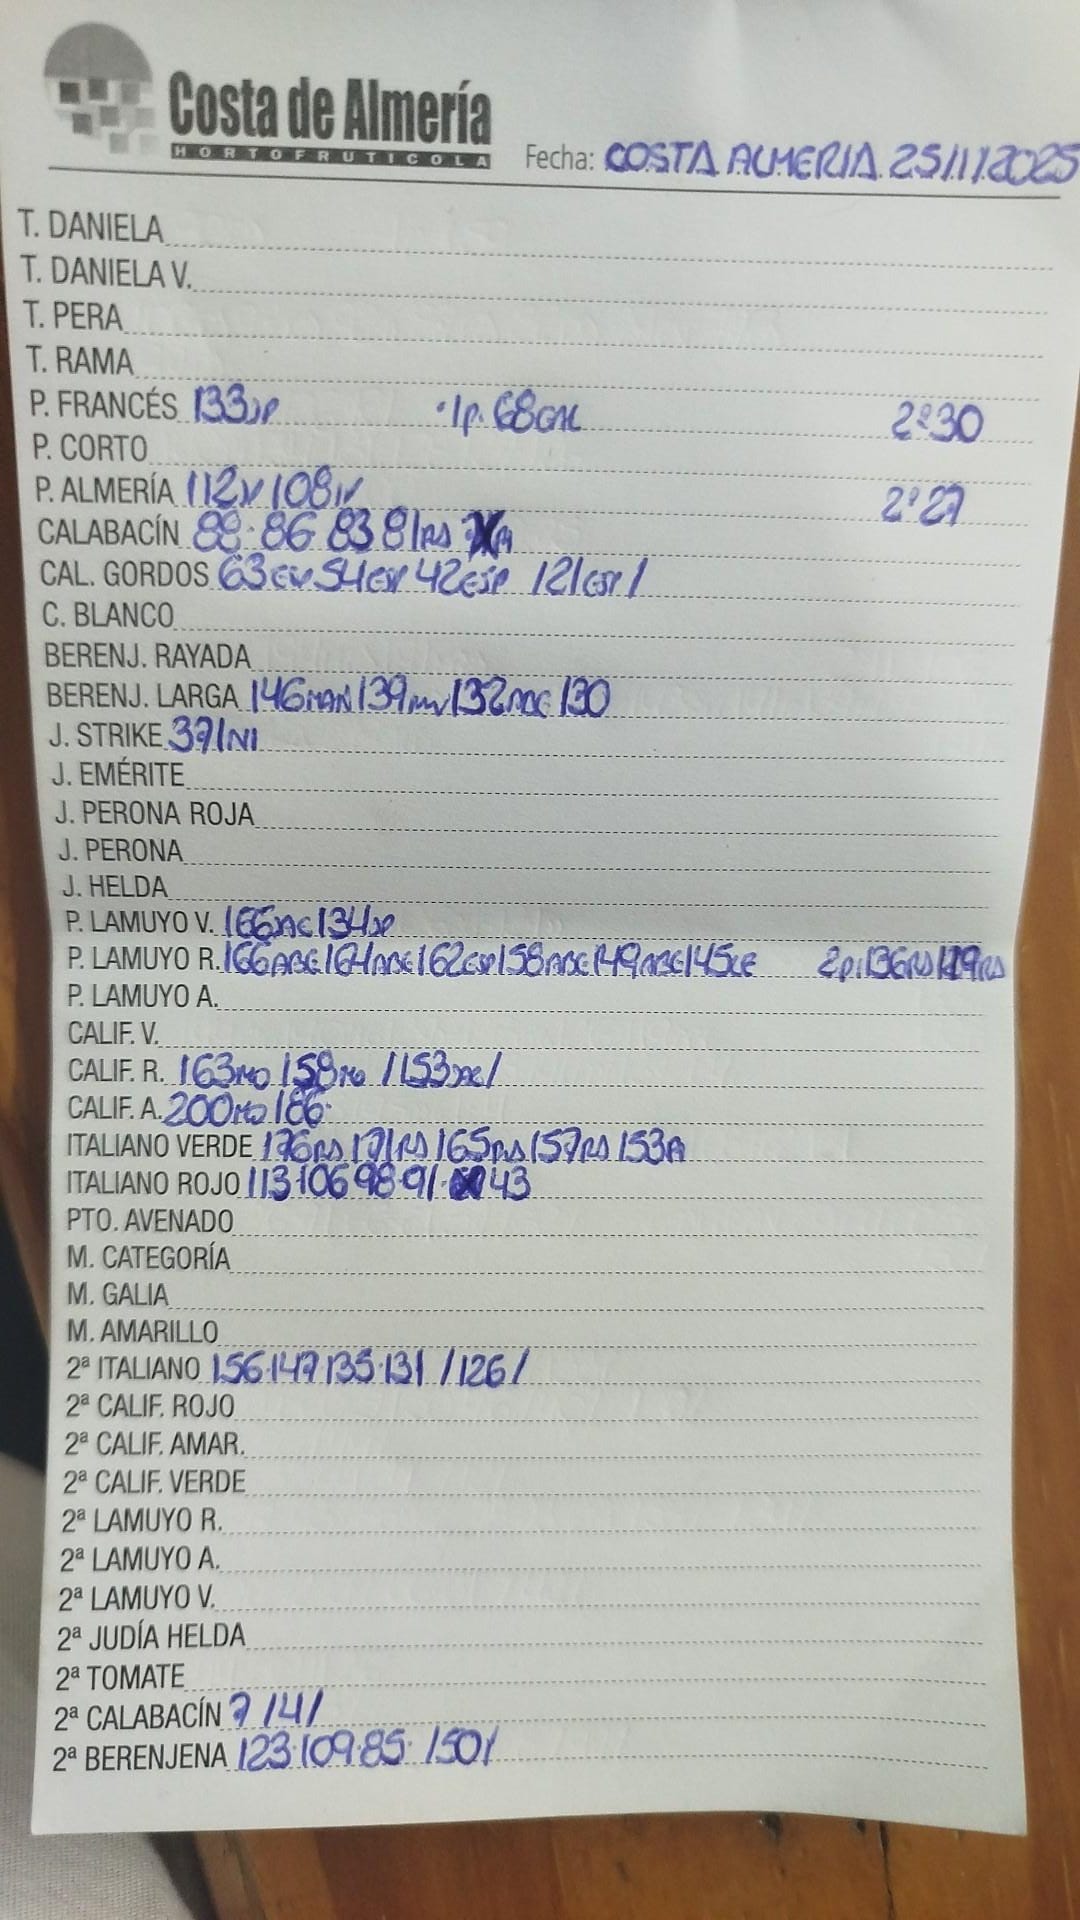 Costa de Almería
HORTOFRUTICOLA
Fecha: COSTA ALMERIA 25/11/2025
T. DANIELA
T. DANIELA V.
T. PERA
T. RAMA
P. FRANCÉS 133JP 1p. 68GAL 2ª30
P. CORTO
P. ALMERÍA 112 108 2ª27
CALABACÍN 88·86 83 81RS
CAL. GORDOS 63 54ESP 42ESP 121ESP/
C. BLANCO
BERENJ. RAYADA
BERENJ. LARGA 146MAN/139 /132 130
J. STRIKE 37/NI
J. EMÉRITE
J. PERONA ROJA
J. PERONA
J. HELDA
P. LAMUYO V. 166 134JP
P. LAMUYO R. 166ABE/164ABE/162ESP/158ABE 149ABE/145 2p. 136RS 129RS
P. LAMUYO A.
CALIF. V.
CALIF. R. 163MO 158MO /153 /
CALIF. A. 200MO 186·
ITALIANO VERDE 176RS 171RS 165RS/157RS 153A
ITALIANO ROJO 113·106 98·91· 43
PTO. AVENADO
M. CATEGORÍA
M. GALIA
M. AMARILLO
2ª ITALIANO 156·147 135·131 /126/
2ª CALIF. ROJO
2ª CALIF. AMAR.
2ª CALIF. VERDE
2ª LAMUYO R.
2ª LAMUYO A.
2ª LAMUYO V.
2ª JUDÍA HELDA
2ª TOMATE
2ª CALABACÍN 7 /4/
2ª BERENJENA 123·109·85· /50/